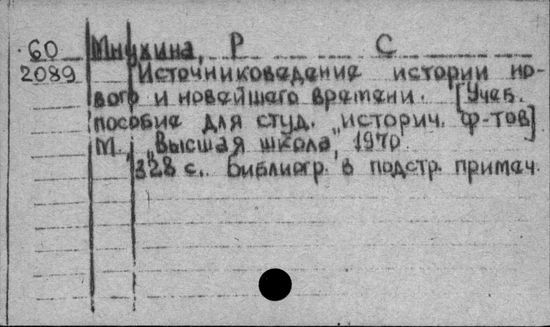 60 Мнухина, Р С
2089 Источниковедение истории но-
вого и новейшего времени. [Учеб.
пособие для студ. историч. ф-тов]
М., „Высшая школа", 1970.
328 с. Библиогр. в подстр. примеч.